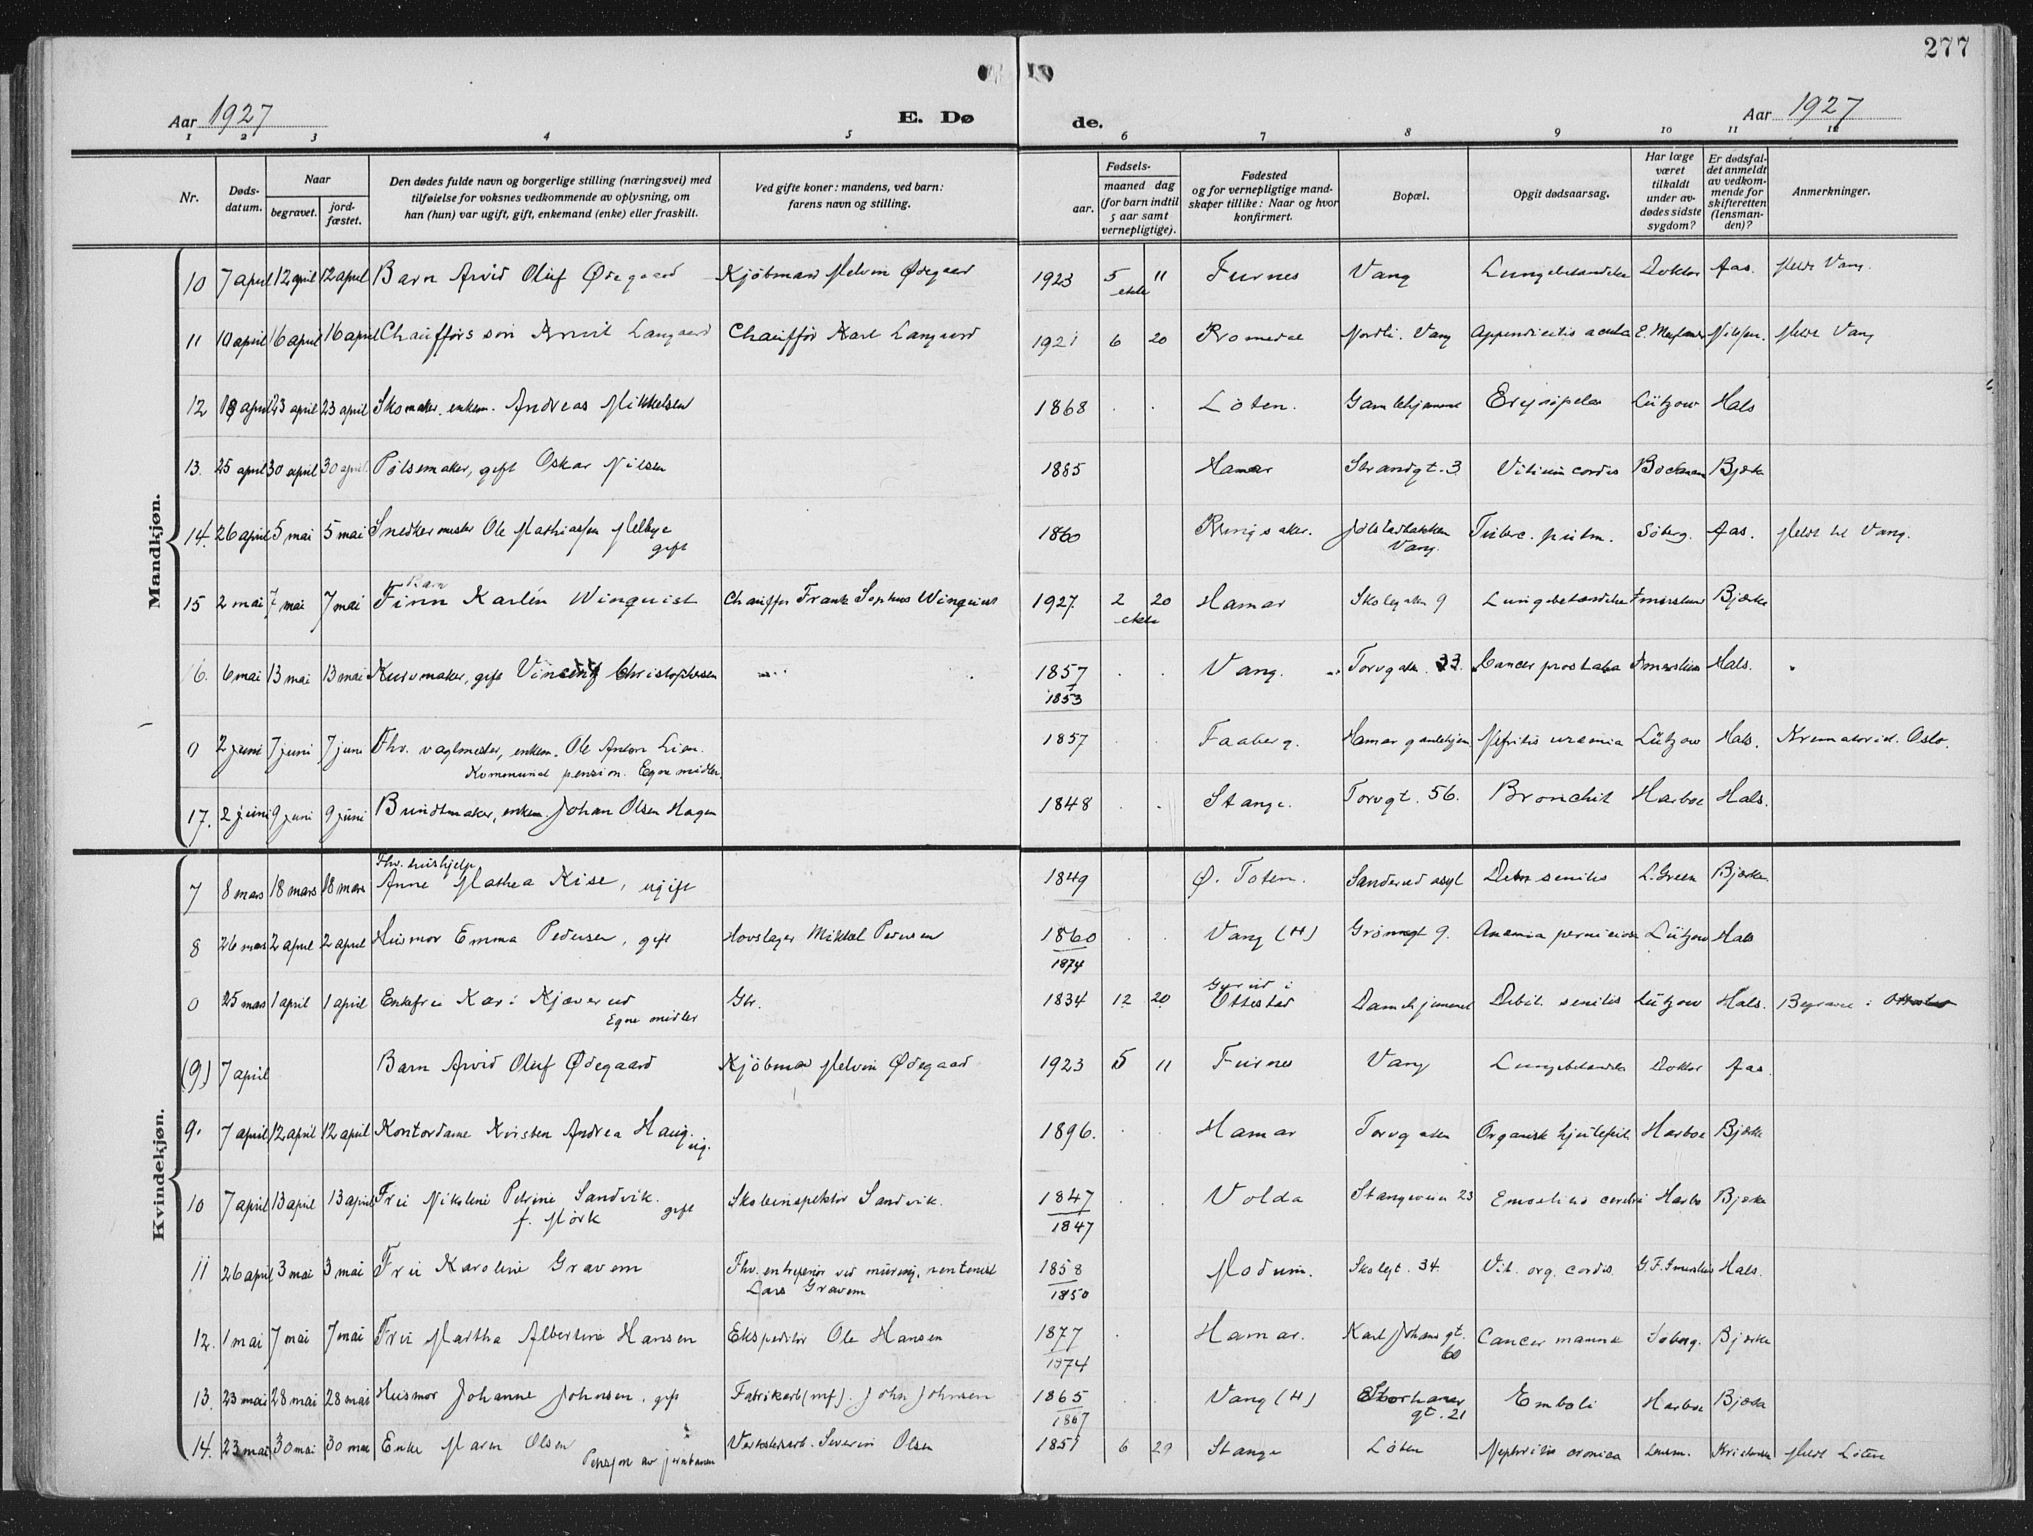 277
Aar 1927
E. Døde.
Aar 1927
1 2 3 4 5 6 7 8 9 10 11 12
Nr.
Døds-
datum.
Naar
begravet.
jord-
fæstet.
Den dødes fulde navn og borgerlige stilling (næringsvei) med
tilføielse for voksnes vedkommende av oplysning, om
han (hun) var ugift, gift, enkemand (enke) eller fraskilt.
Ved gifte koner: mandens, ved barn:
farens navn og stilling.
Fødsels-
aar.
maaned dag
(for barn indtil
5 aar samt
vernepligtige).
Fødested
og for vernepligtige mand-
skaper tillike: Naar og hvor
konfirmert.
Bopæl.
Opgit dødsaarsag.
Har læge
været
tilkaldt
under av-
dødes sidste
sygdom?
Er dødsfal-
det anmeldt
av vedkom-
mende for
skifteretten
(lensman-
den)?
Anmerkninger.
Mandkjøn.
10 7 april 12 april 12 april Barn Arvid Oluf Ødegaard Kjøbmand Melvin Ødegaard 1923 5 11 Furnes Vang Lungebetændelse Doktor Aas. Meldt Vang.
11 10 april 16 april 16 april Chaufførs søn Langaard Chauffør Karl Langaard 1921 6 20 Romedal Nordli. Vang Appendicitis acuta E. Nilsen. Meldt Vang
12 18 april 23 april 23 april Skomaker, enkem. Andreas Mikkelsen 1868 Løten. Gamlehjemmet Erysipelas Lützow Hals
13. 25 april 30 april 30 april Pølsemaker, gift Oskar Nilsen 1885 Hamar Strandgt. 3 Vitium cordis Bockman Bjerke
14. 26 april 5 mai 5 mai Snedkermester Ole Mathiassen Melbye 1860 Ringsaker. Tuberc. pulm. Søberg. Aas. Meldt til Vang.
gift
Vang.
Barn
15 2 mai 7 mai 7 mai Finn Karlén Winquist Chauffør Frank Sophus Winquist 1927 2 20 Hamar Skolegaten 9 Lungebetændelse Bjerke
16. 6 mai 13 mai 13 mai Kurvmaker, gift Christophersen 1857 Vang. Torvgaten 33. Cancer prostata Hals.
1853
0 2 juni 7 juni 7 juni Fhv. vagtmester, enkem. Ole Anton Lien. 1857 Faaberg. Hamar gamlehjem Nefritis uræmia Lützow Hals. Krematoriet. Oslo.
Kommunal pension. Egne midler.
17. 2 juni 9 juni 9 juni Bundtmaker, enkem. Johan Olsen Hagen 1848 Stange. Torvgt. 56. Bronchit Harboe Hals.
Kvindekjøn.
Fhv. hushjelp
7 8 mars 18 mars 18 mars Anne Mathea Kise, ugift 1849 Ø. Toten. Sanderud asyl senilis L. Green Bjerke
8 26 mars 2 april 2 april Husmor Emma Pedersen, gift Hovslager Mikkel Pedersen 1860 Vang (H) Grønnegt 9. Anæmia perniciosa Lützow Hals
1874
0 25 mars 1 april 1 april Enkefru Kari Kjæverud Gbr. 1834 12 20 i Ottestad Debil. senilis Lützow Hals. Begravet i Ottestad
Egne midler
(9) 7 april Barn Arvid Oluf Ødegaard Kjøbmand Melvin Ødegaard 1923 5 11 Furnes Vang Lungebetændelse Doktor Aas.
9. 7 april 12 april 12 april Kontordame Kirsten Andrea Haug, ug. 1896. Hamar Torvgaten Organisk hjertefeil Harboe Bjerke
10 7 april 13 april 13 april Fru Nikoline Petrine Sandvik. Skoleinspektør Sandvik. 1847 Volda Stangeveien 23 Emollitio cerebri Harboe Bjerke
f. Mørk gift
1847
11 26 april 3 mai 3 mai Fru Karoline Gravem Fhv. entreprenør ved murning, rentenist 1858 Modum. Skolegt. 34. Vit. org. cordis. G.F. Hals.
Lars Gravem
1850
12. 1 mai 7 mai 7 mai Fru Martha Albertine Hansen Ekspeditør Ole Hansen 1877 Hamar. Karl Johans gt. Cancer mammæ Søberg. Bjerke
60
1874
13. 23 mai 28 mai 28 mai Husmor Johanne Johnsen, gift Fabrikarb (mf). John Johnsen 1865 Vang (H) Storhamar Emboli Harboe Bjerke
gt. 21
1867
14. 23 mai 30 mai 30 mai Enke Maren Olsen Verkstedarb. Severin Olsen 1851 6 29 Stange Løten Nephritis cronica Lensm. Kristensen Meldt Løten
Pensjon av jernbanen